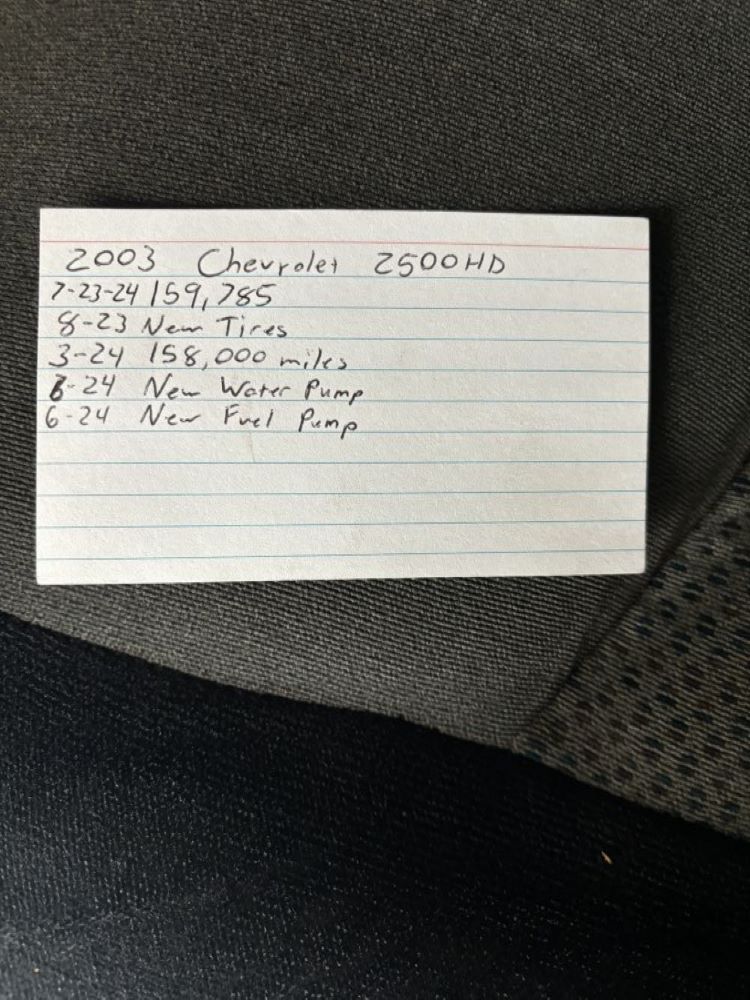 2003 Chevrolet 2500HD
7-23-24 159,785
8-23 New Tires
3-24 158,000 miles
6-24 New Water Pump
6-24 New Fuel Pump